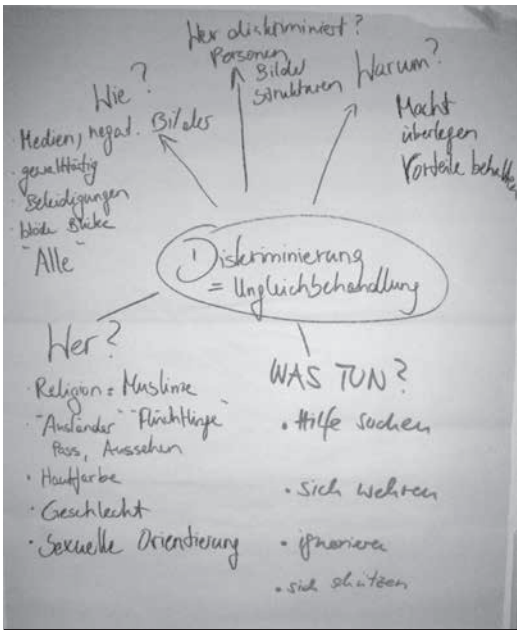 Wer diskriminiert?
Personen
Bilder
Strukturen
Wie?
· Medien, negat. Bilder
· gewalttätig
· Beleidigungen
· blöde Blicke
"Alle"
Warum?
Macht
überlegen
Vorteile behalten
Diskriminierung
= Ungleichbehandlung
Wer?
· Religion = Muslime
· "Ausländer" "Flüchtlinge"
Pass, Aussehen
· Hautfarbe
· Geschlecht
· Sexuelle Orientierung
WAS TUN?
· Hilfe suchen
· sich wehren
· ignorieren
· sich schützen